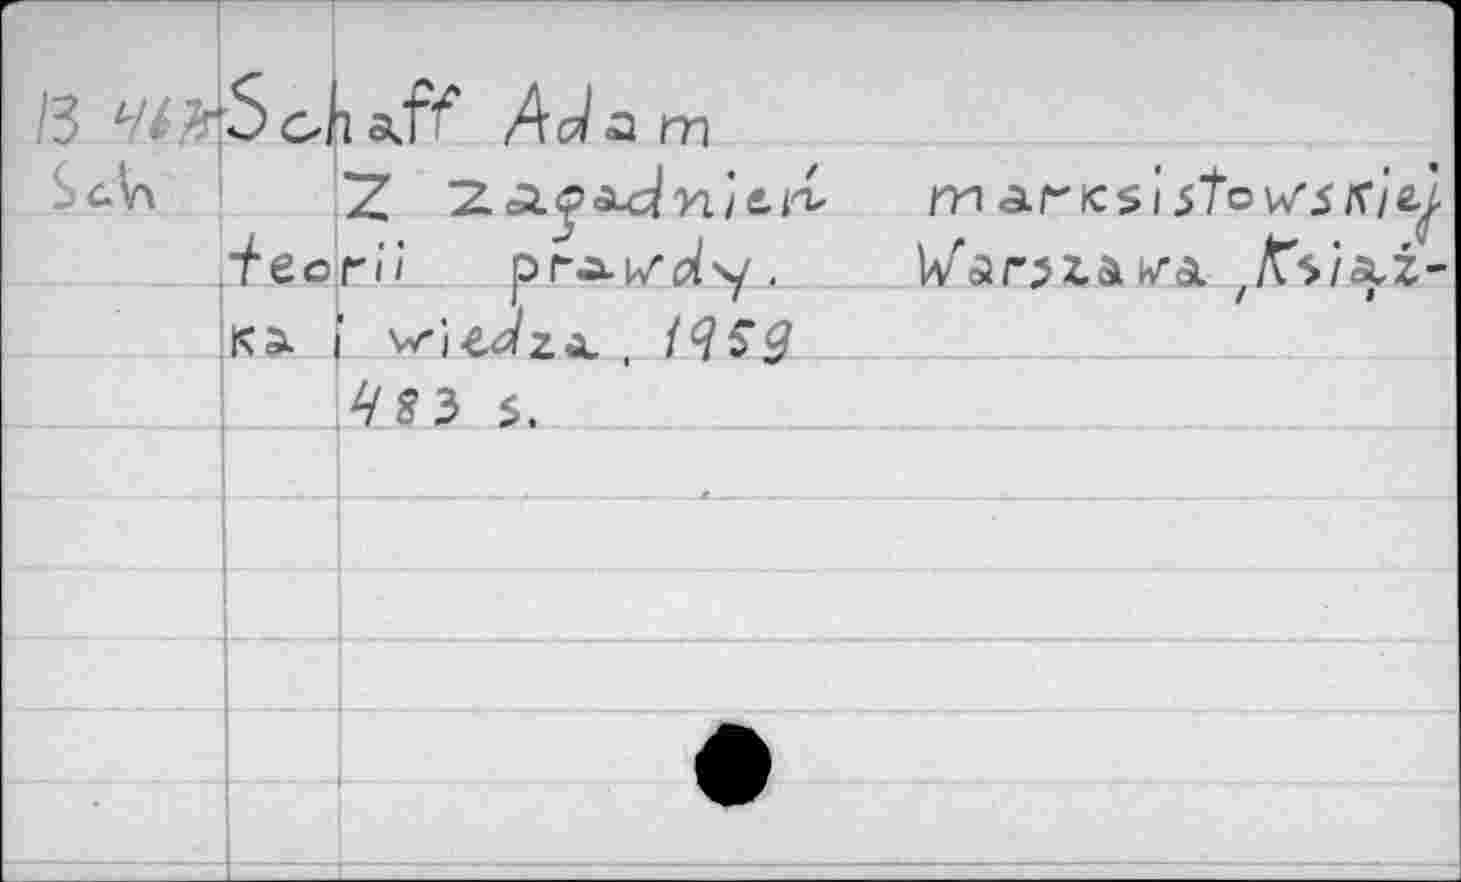 Schaff Adam
Sch Z zagadnień marksistowskiej
teorii prawdy. Warszawa, Książ-
ka i wiedza, 1959
483 s.